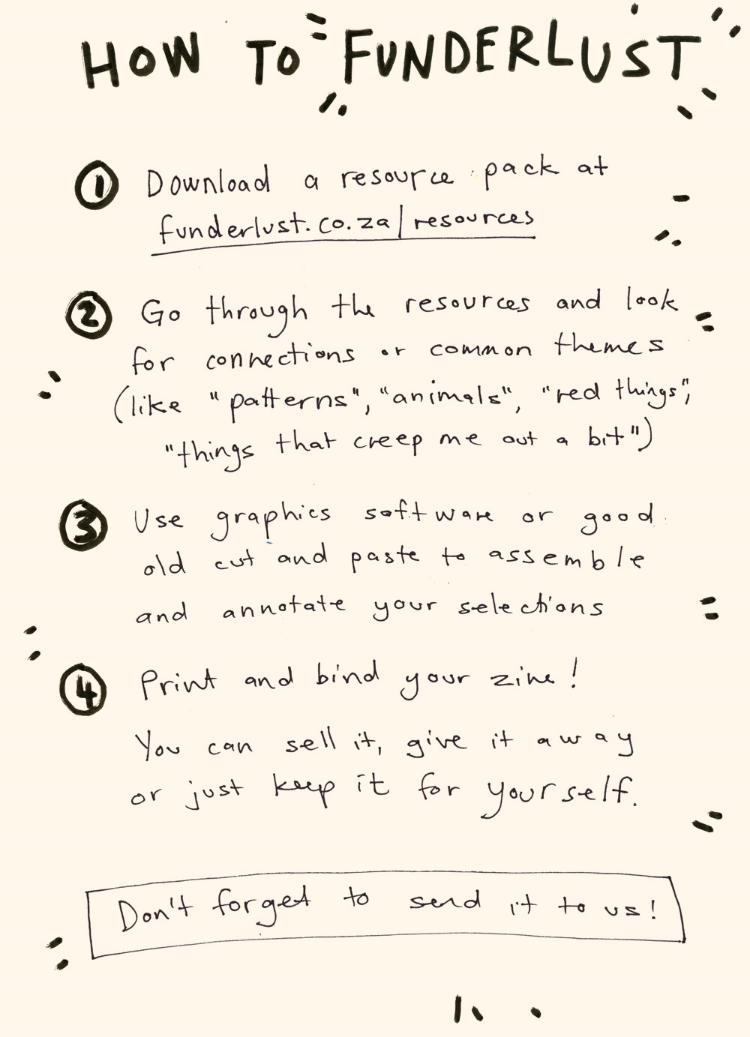 HOW TO FUNDERLUST
1 Download a resource pack at
funderlust.co.za/resources
2 Go through the resources and look
for connections or common themes
(like "patterns", "animals", "red things",
"things that creep me out a bit")
3 Use graphics software or good
old cut and paste to assemble
and annotate your selections
4 Print and bind your zine!
You can sell it, give it away
or just keep it for yourself.
Don't forget to send it to us!